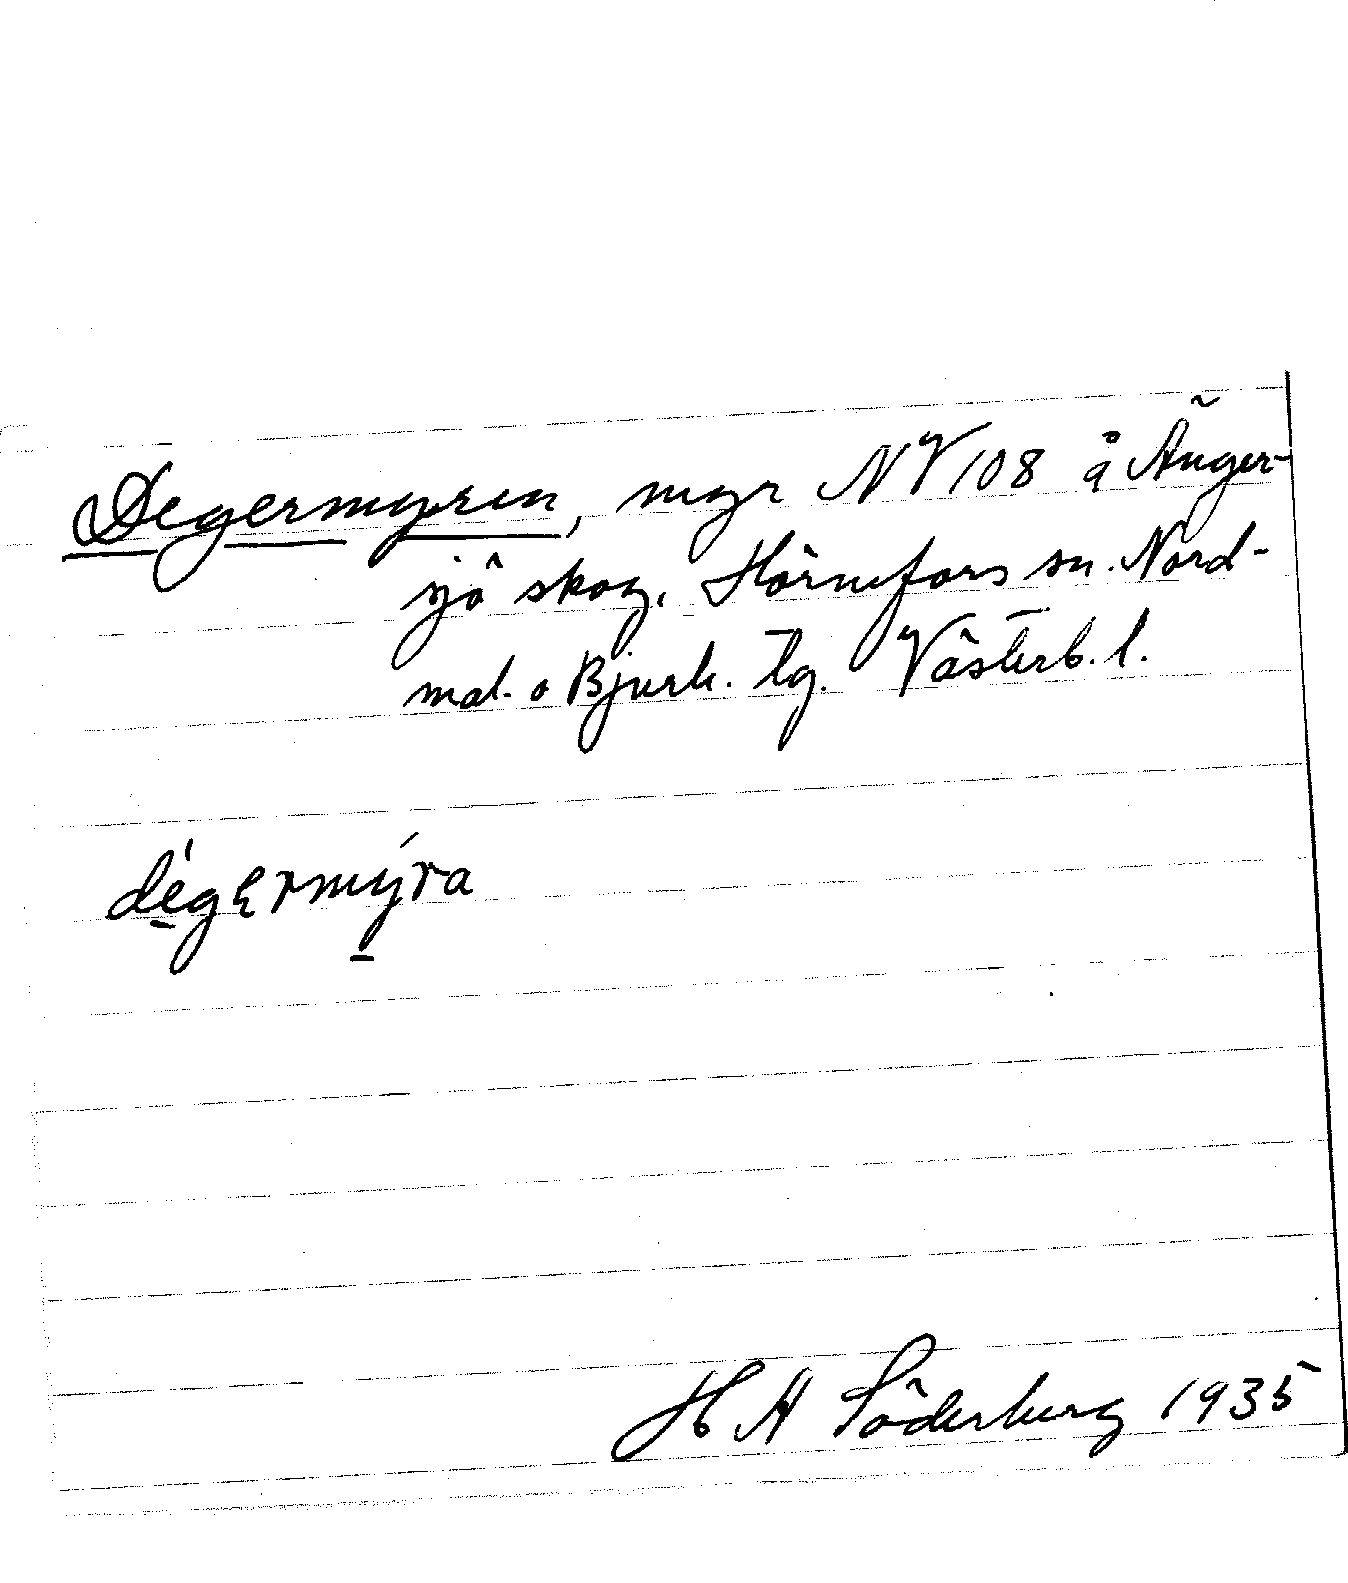 Degermyren, myr NV 108 å Änger-
sjö skog, Hörnefors sn. Nord-
mal. o Bjurh. tg. Västerb. l.
dégɛrmýra
H A Söderberg 1935